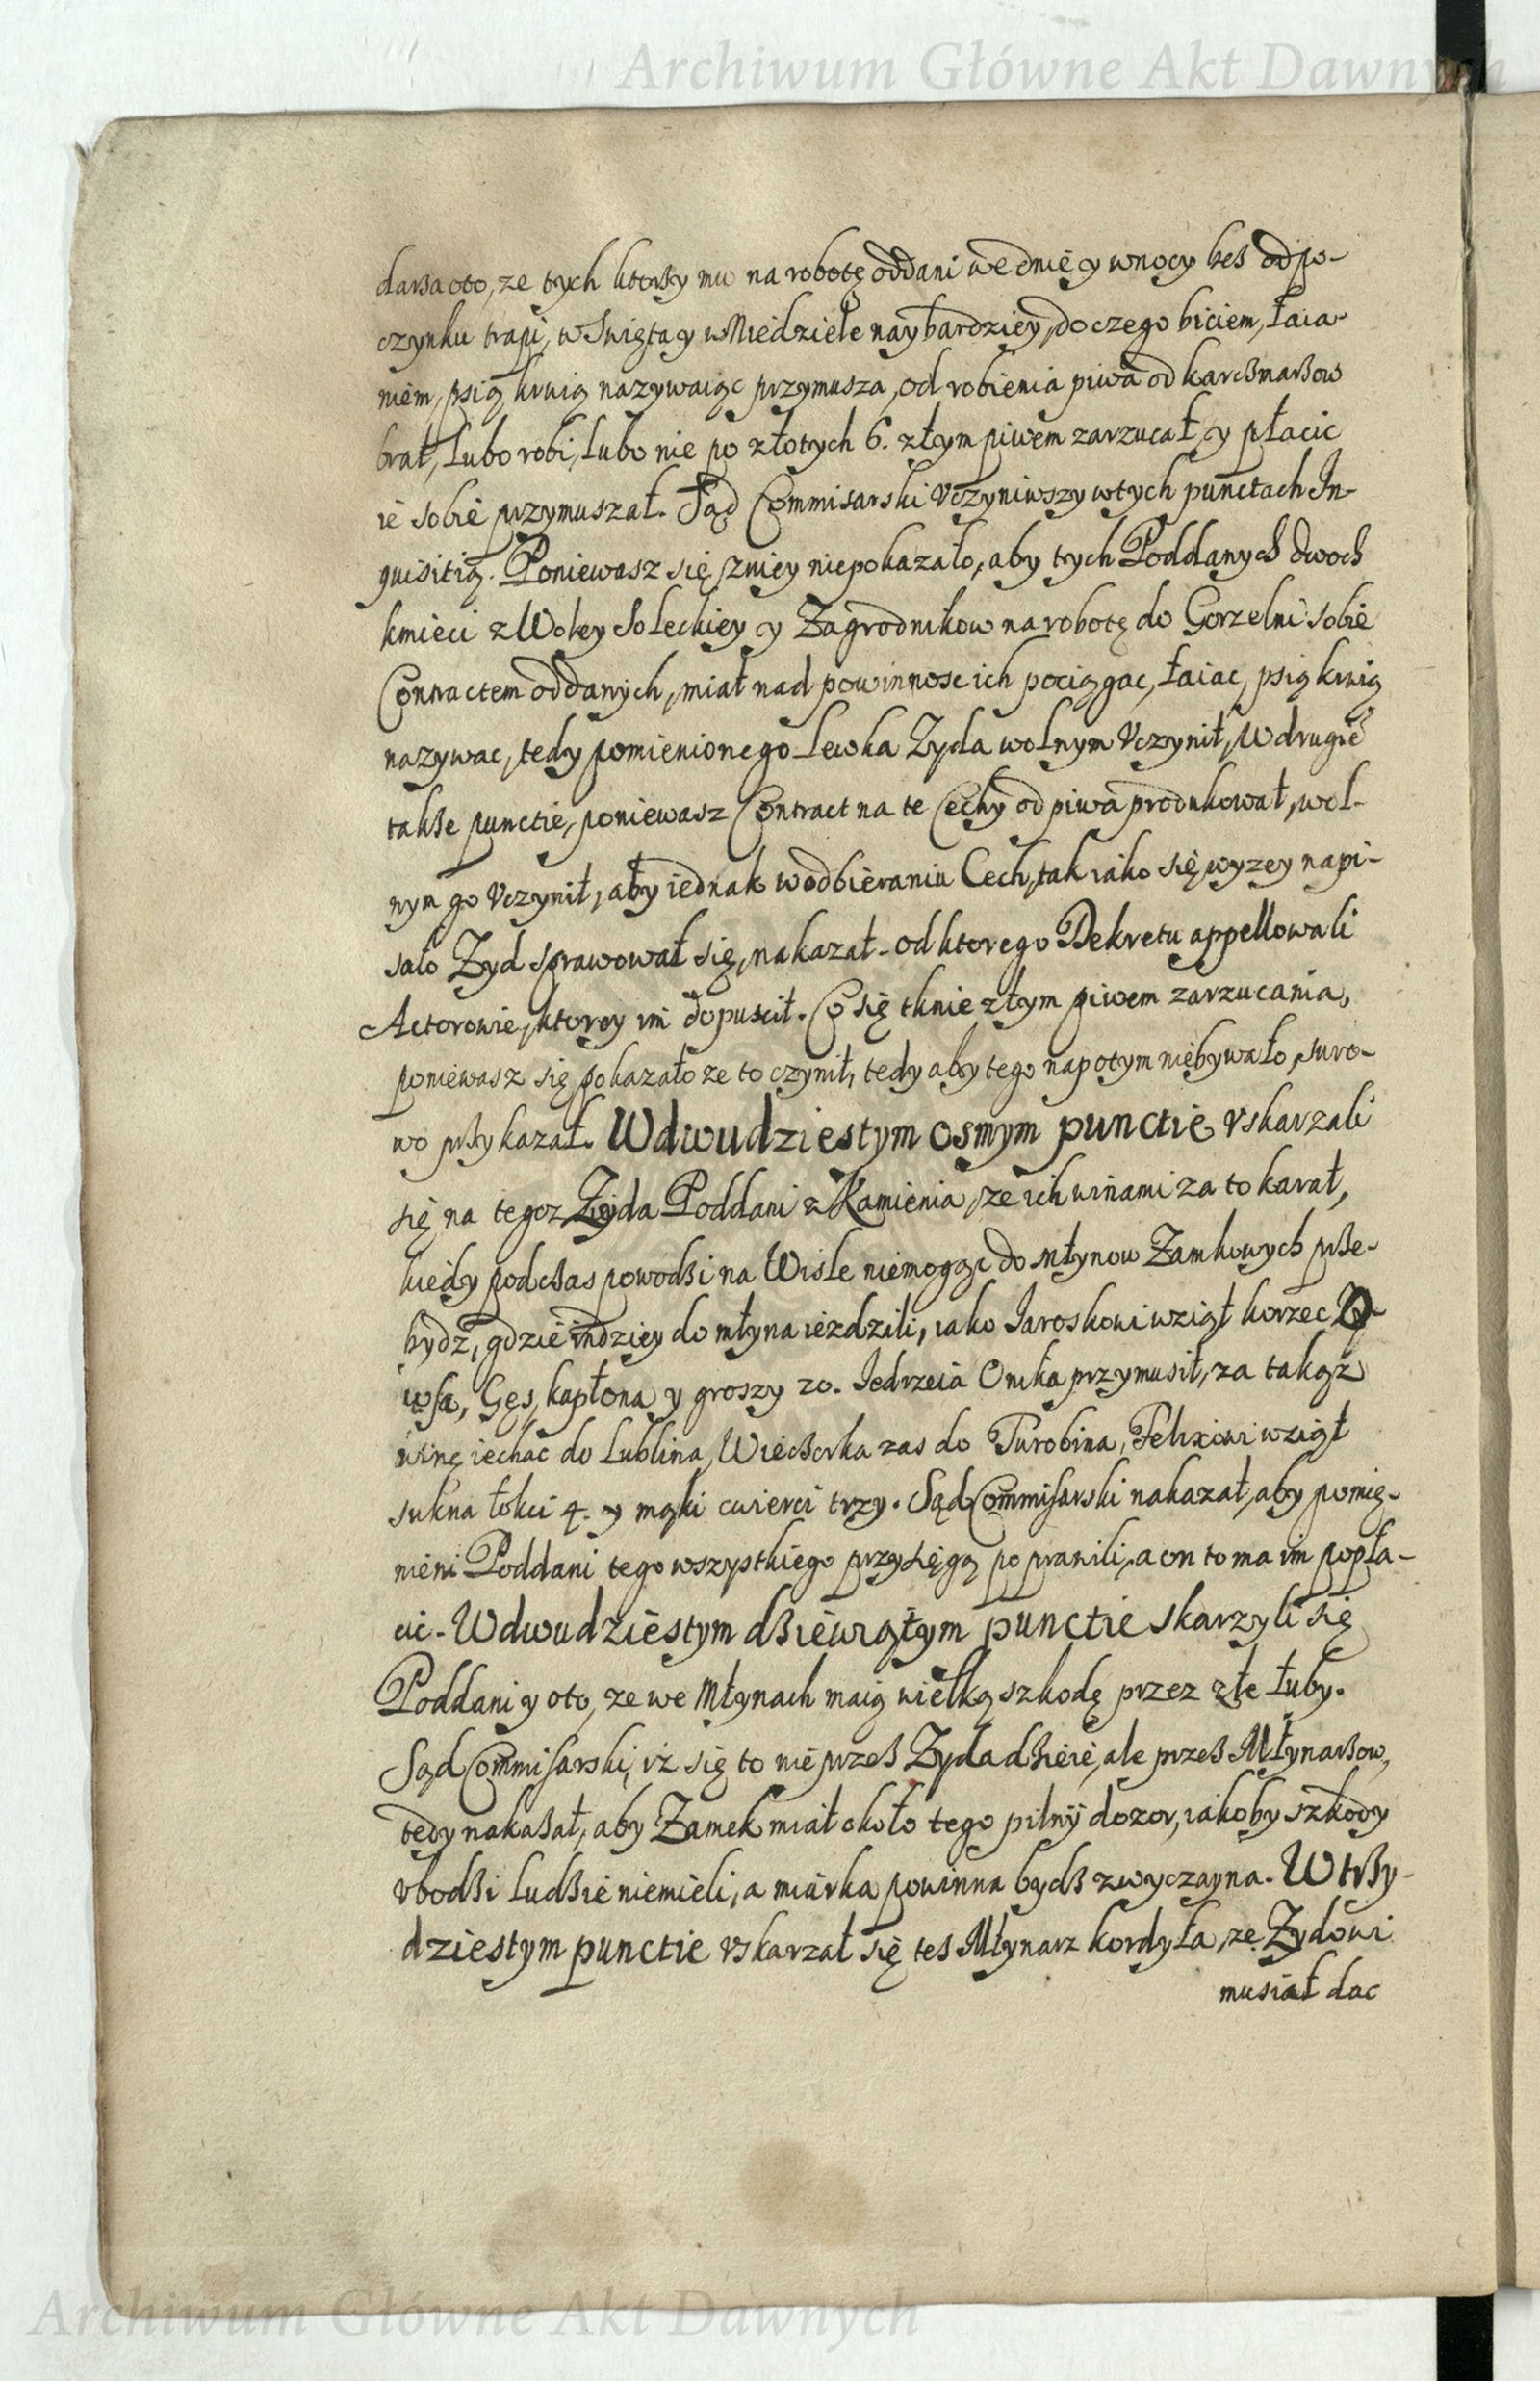 Archiwum Główne Akt Dawnych
darza oto, ze tych ktorzy mu na robotę oddani we dnie y w nocy bes odpo-
czynku trapi, w Swięta y w Niedziele naybardziey, do czego biciem, łaia-
niem, psią krwią nazywaiąc przymusza, od robienia piwa od karczmarzow
brał, lubo robi, lubo nie po złotych 6. złym piwem zarzucał y płacic
ie sobie przymuszał. Sąd Commisarski vczyniwszy w tych punctach In-
quisitią. Poniewasz się z niey niepokazało, aby tych Poddanych dwoch
kmieci z Woley Soleckiey y Zagrodnikow na robotę do Gorzelni sobie
Contractem oddanych, miał nad powinnosc ich pociągac, łaiac, psią krwią
nazywac, tedy pomienionego Lewka Zyda wolnym vczynił, w drugie
takze punctie, poniewasz Contract na te Cechy od piwa produkował, wol-
nym go vczynił, aby iednak w odbieraniu Cech, tak iako się wyzey napi-
sało Zyd sprawował się, nakazał. od ktorego Dekretu appellowali
Actorowie, ktorey im dopuscił. Co się tknie złym piwem zarzucania,
poniewasz się pokazało ze to czynił, tedy aby tego napotym niebywało, suro-
wo przykazał. W dwudziestym osmym punctie vskarzali
się na tegoz Zyda Poddani z Kamienia, ze ich winami za to karał,
kiedy podczas powodzi na Wisle niemogąc do młynow Zamkowych prze-
bydz, gdzie indziey do młyna iezdzili, iako Iaroskowi wziął korzec
wsa, Gęs, kapłona y groszy 20. Iedrzeia Onika przymusił, za takąz
winę iechac do Lublina, Wieczorka zas do Turobina, Felixowi wziął
sukna łokci 4. y mąki cwierci trzy. Sąd Commisarski nakazał, aby pomię-
nieni Poddani tego wszystkiego przysięgą poprawili, a on to ma im popła-
cic. W dwudziestym dziewiątym punctie skarzyli się
Poddani y oto, ze we Młynach maią wielką szkodę przez złe łuby.
Sąd Commisarski, iz się to nie przez Zyda dzieie, ale przez Młynarzow,
tedy nakazał, aby Zamek miał około tego pilny dozor, iakoby szkody
vbodzi ludzie niemieli, a miarka powinna bydz zwyczayna. W trzy-
dziestym punctie vskarzał się tes Młynarz kordyła, ze Zydowi
musiał dac
Archiwum Główne Akt Dawnych